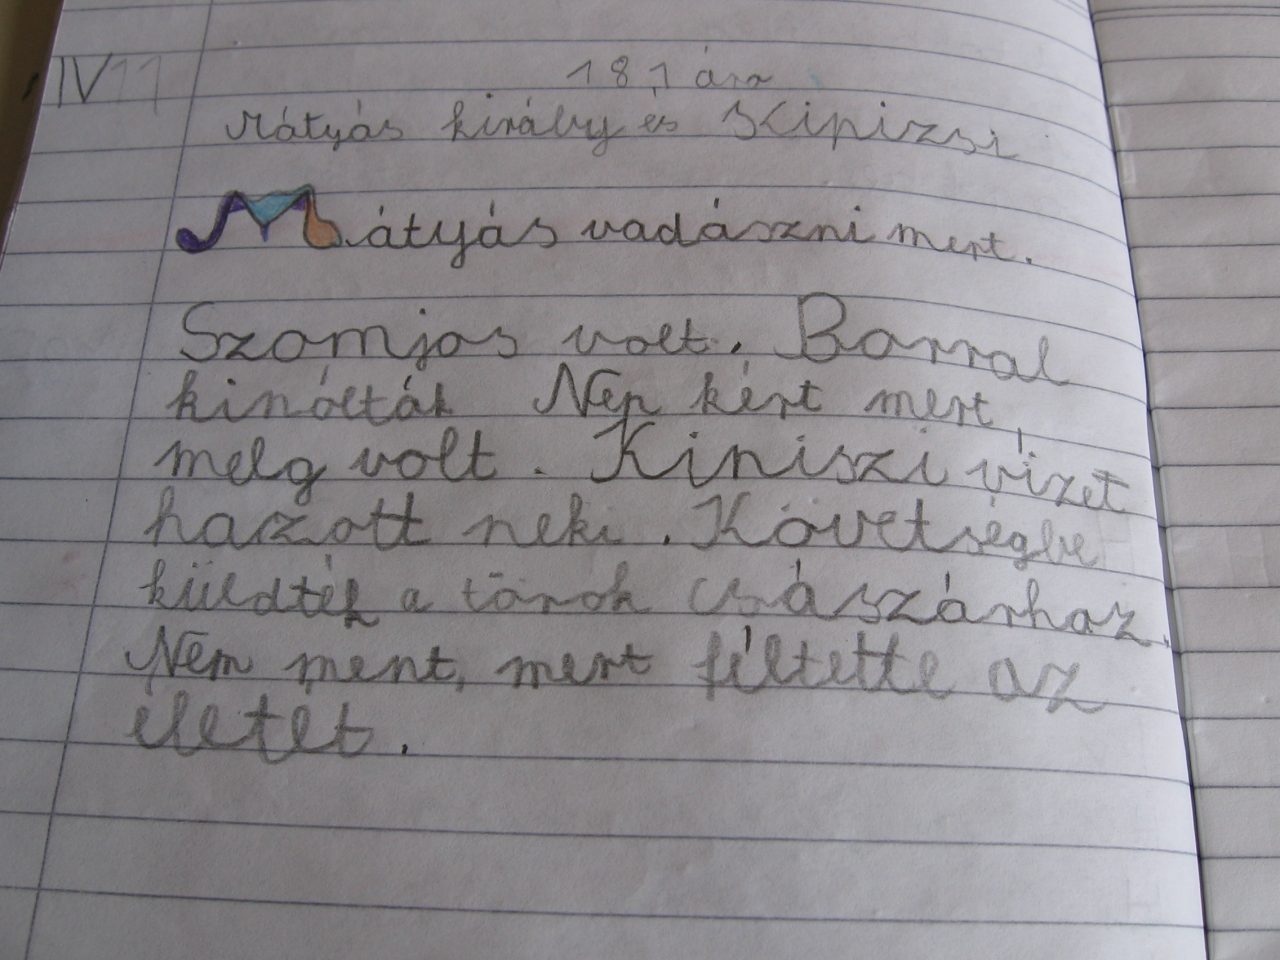 IV 11
181, óra
Mátyás király és Kipizsi
Mátyás vadászni mert.
Szomjas volt. Borral
kinólták Nep kért mert,
melg volt. Kiniszi vizet
hazott neki. Követségbe
küldték a török császárhaz.
Nem ment, mert féltette az
életét.